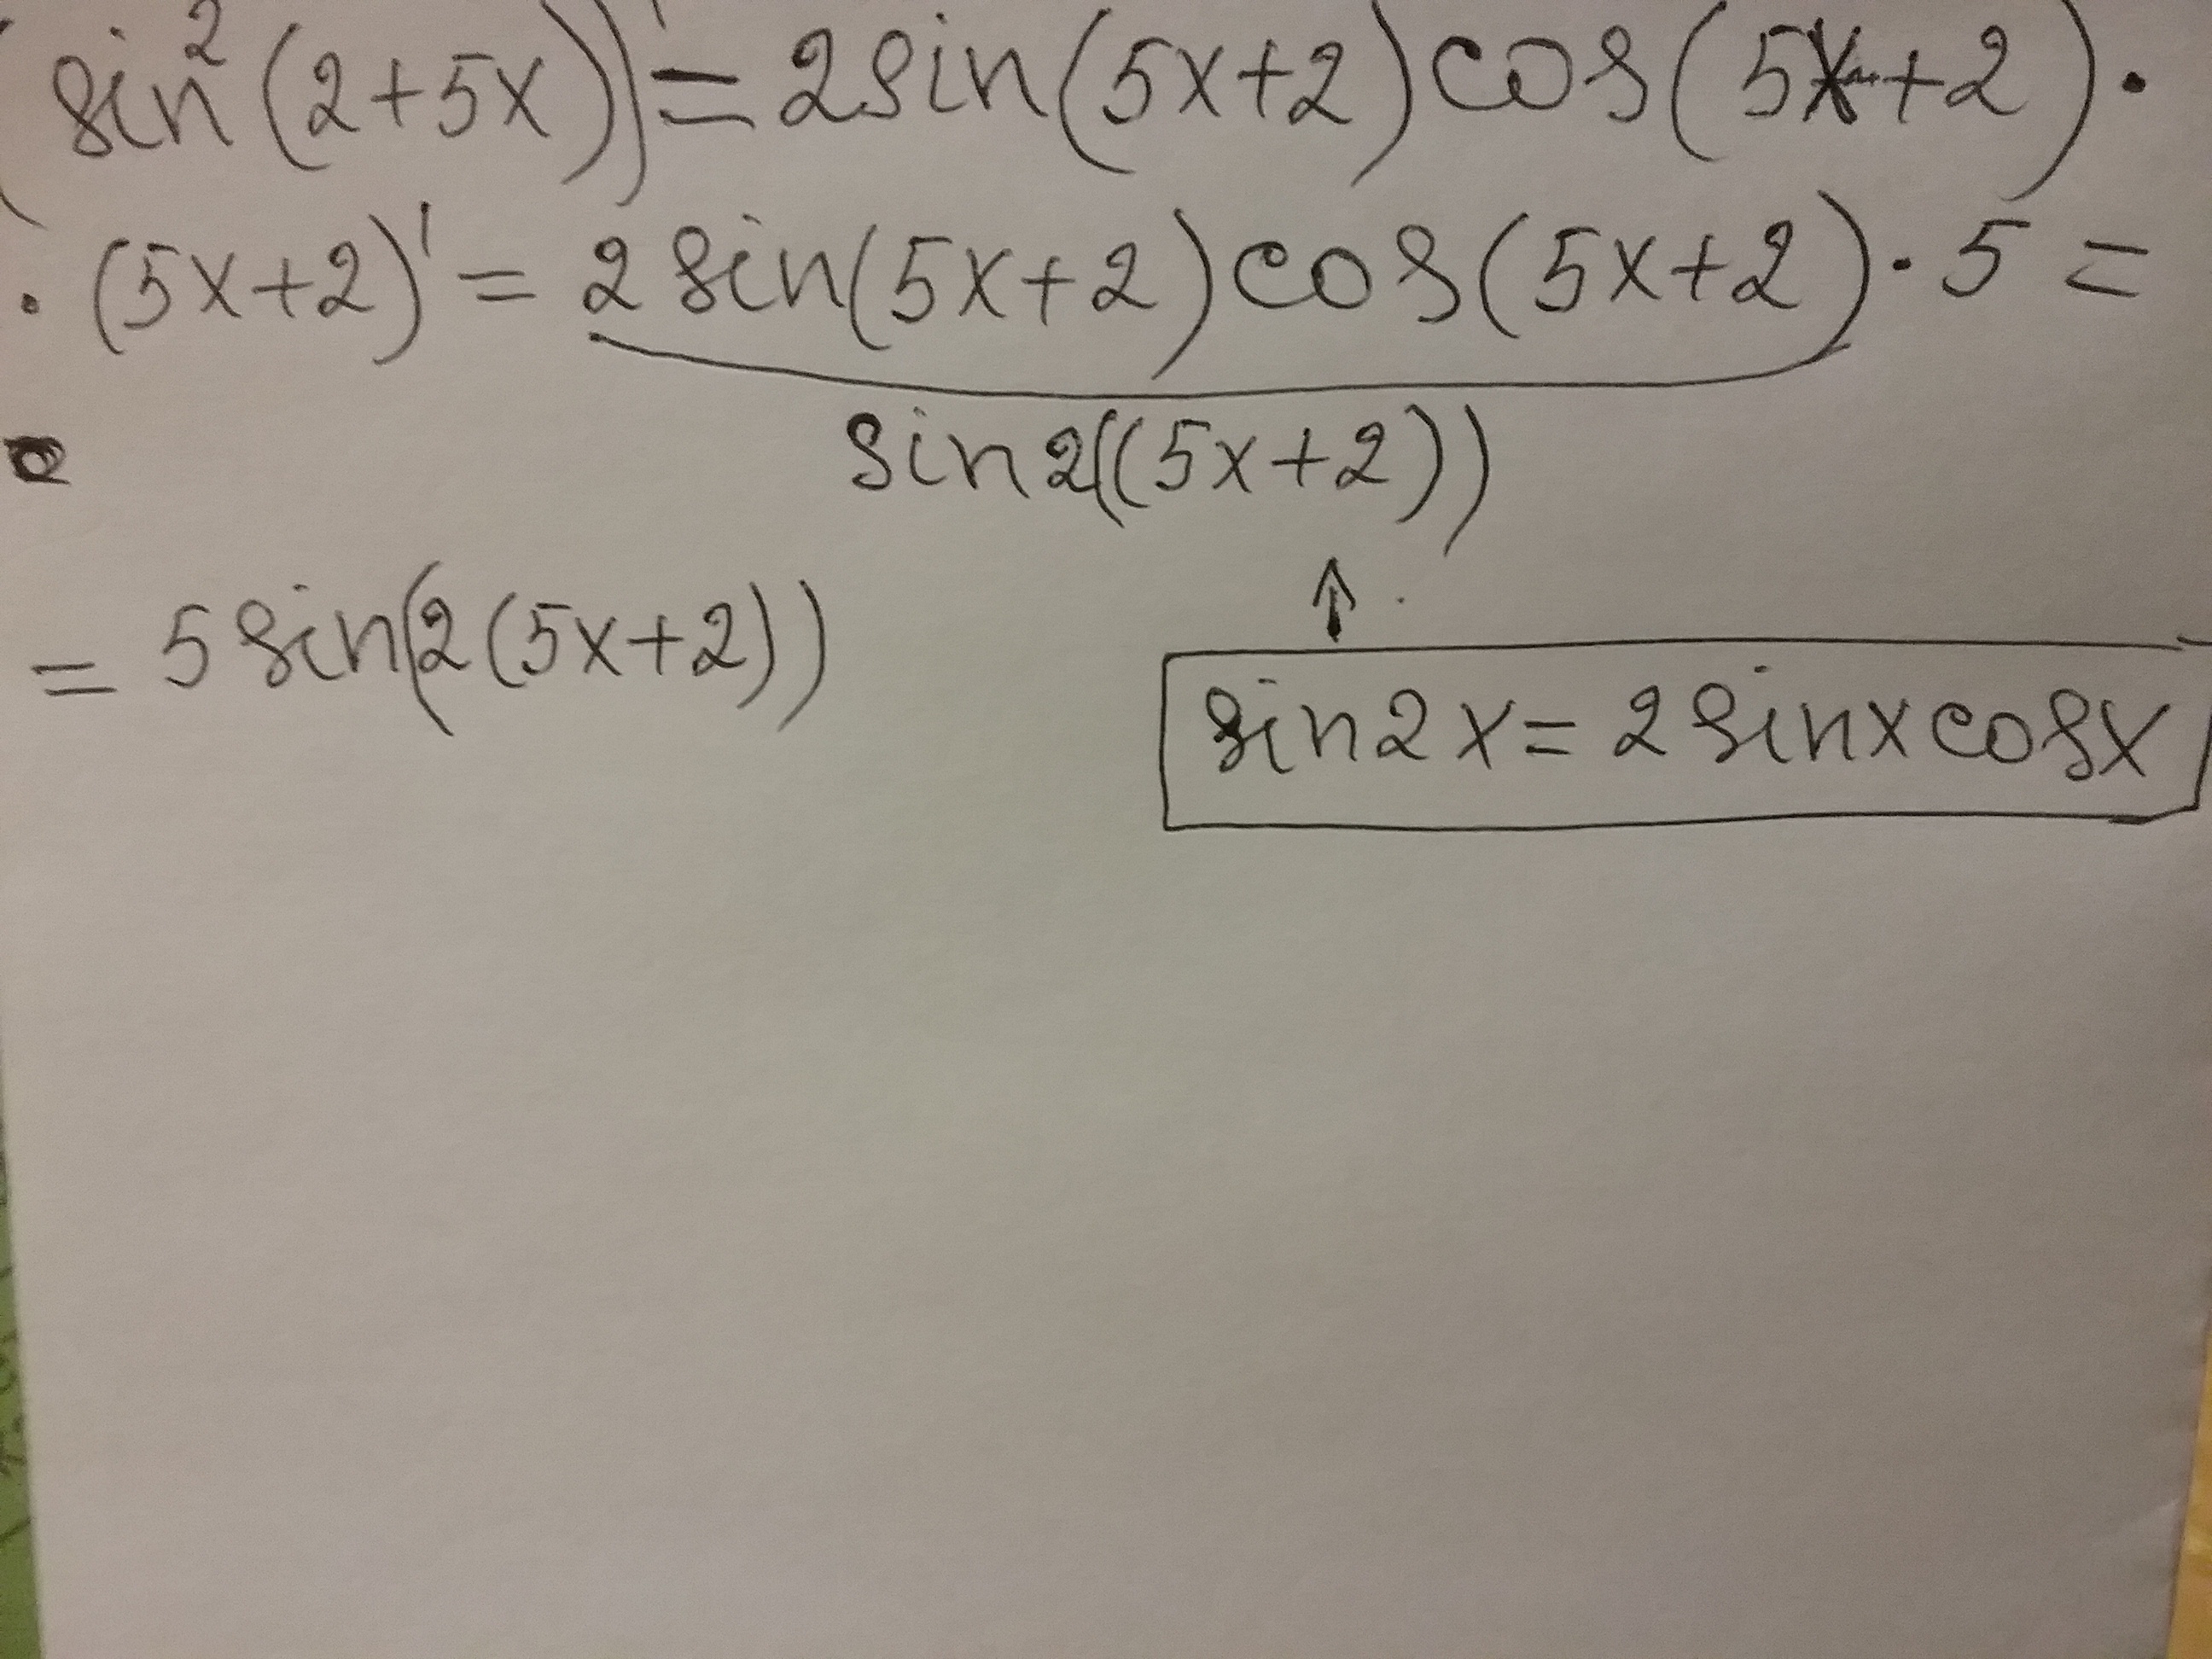 (sin²(2+5x))' = 2sin(5x+2)cos(5x+2)·
·(5x+2)' = 2sin(5x+2)cos(5x+2)·5 =
sin2((5x+2))
= 5sin(2(5x+2))
↑
sin2x = 2sinxcosx